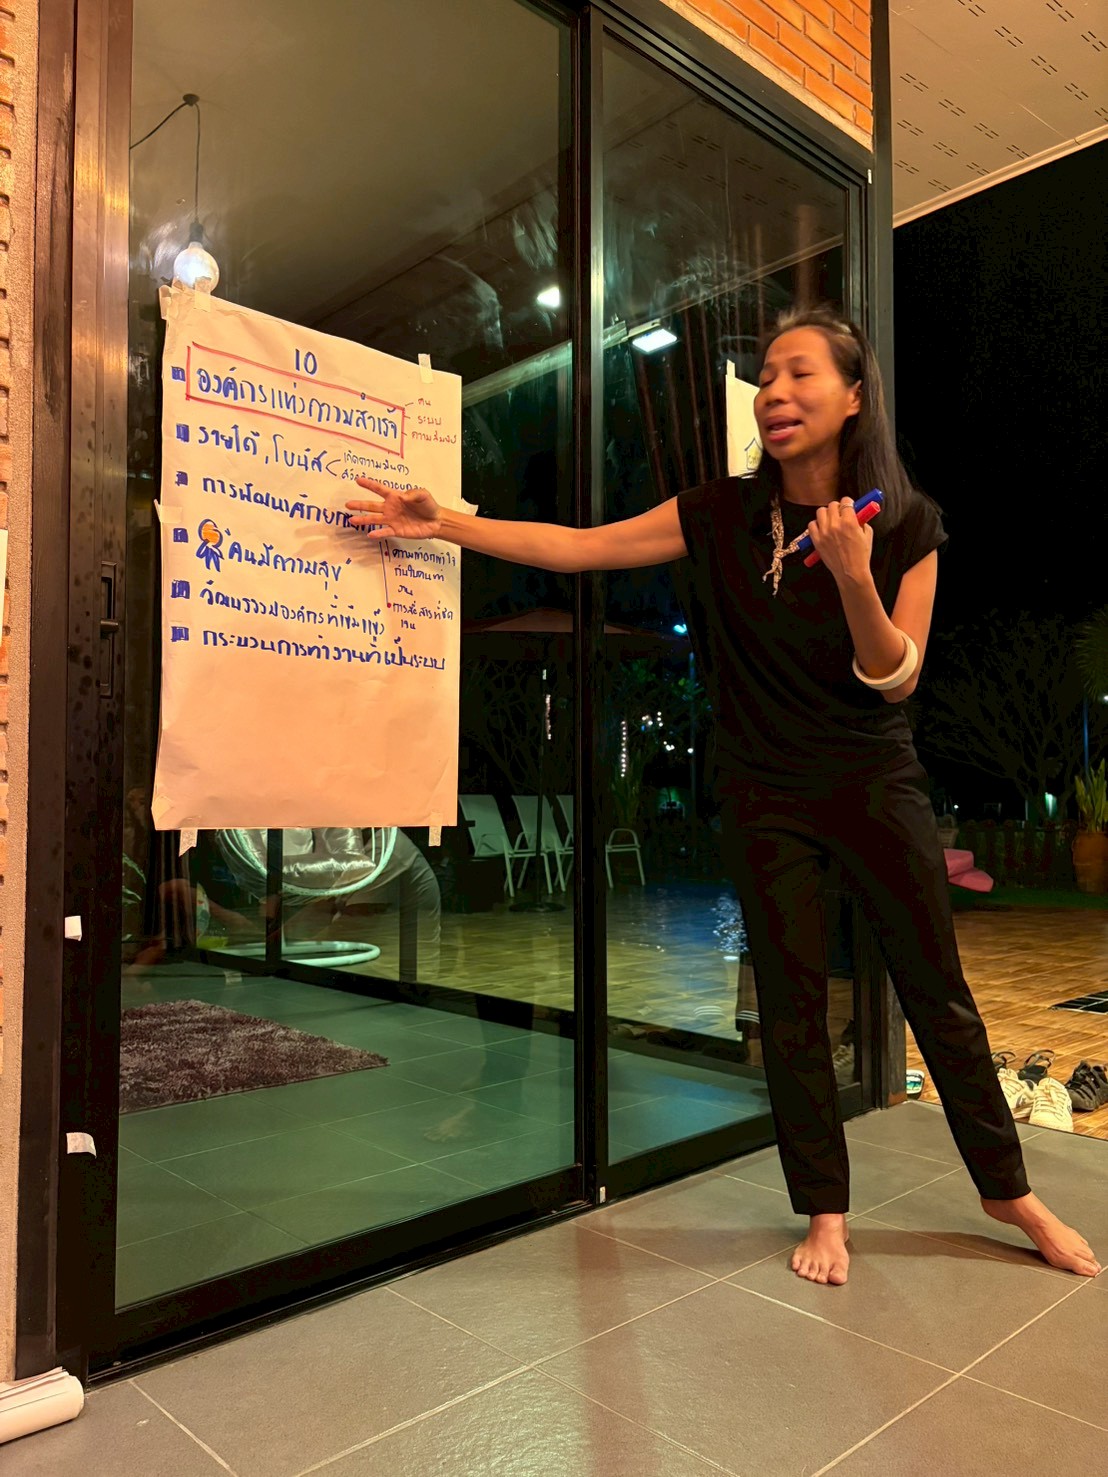 10
องค์กรแห่งความสำเร็จ
คน
ระบบ
ความสัมพันธ์
รายได้, โบนัส
เกิดความมั่นคง
การพัฒนาศักยภาพ
"คนมีความสุข"
ความเข้าอกเข้าใจ
กันในคนทำ
งาน
การสื่อสารที่ชัด
เจน
วัฒนธรรมองค์กรที่เข้มแข็ง
กระบวนการทำงานที่เป็นระบบ